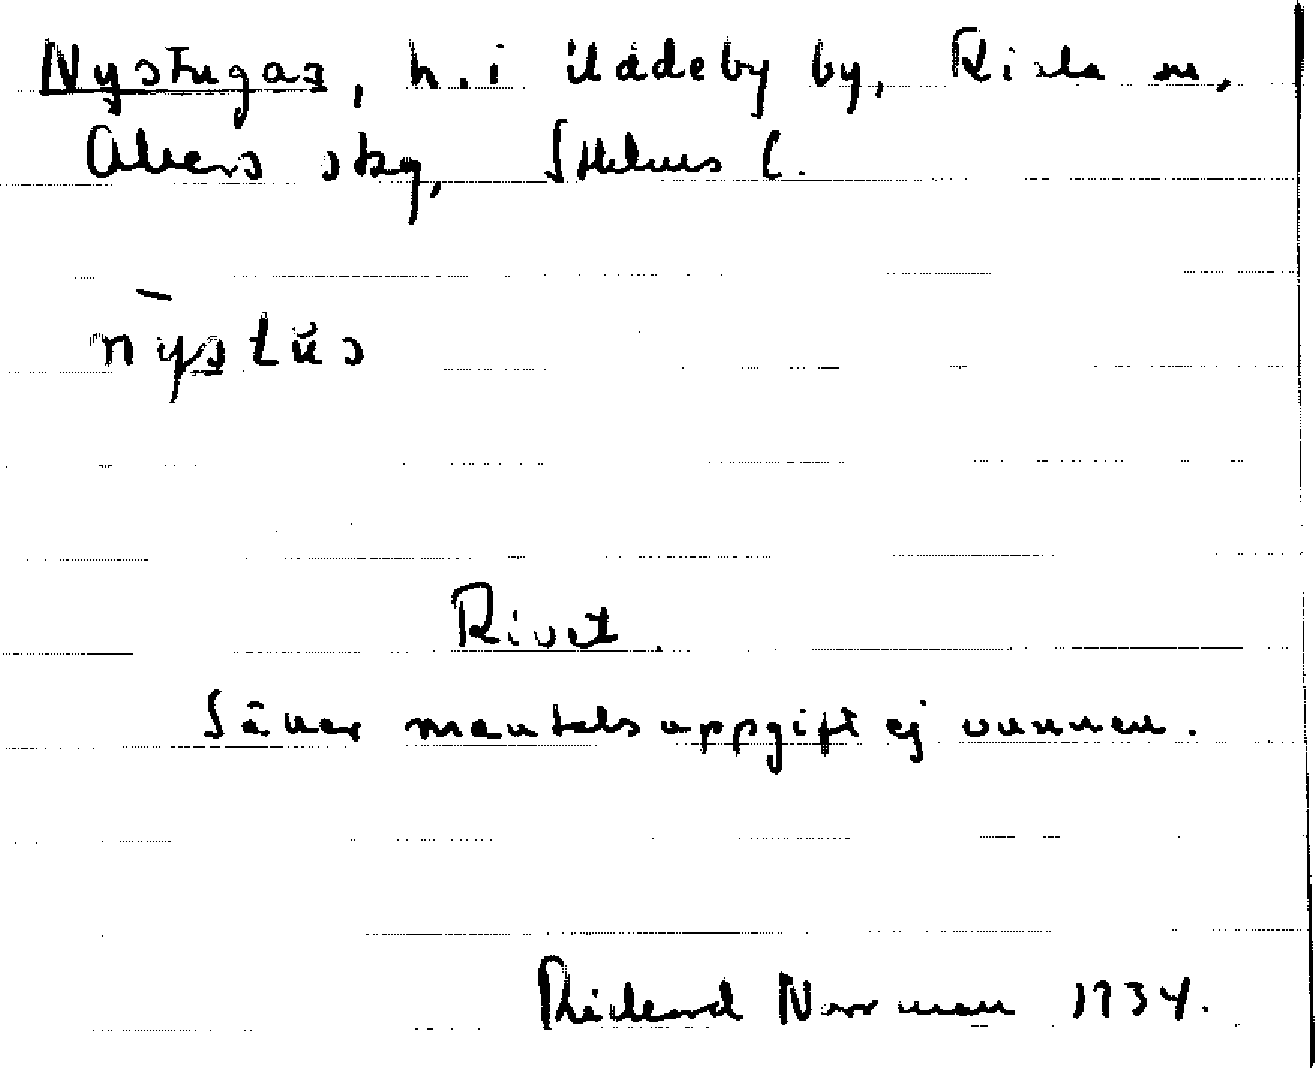 Nystugas, h. i Uddeby by, Riala sn,
Åkers skg, Sthlms l.
nȳstŭs
Rivet.
Säker mantalsuppgift ej vunnen.
Rickard Norrman 1934.